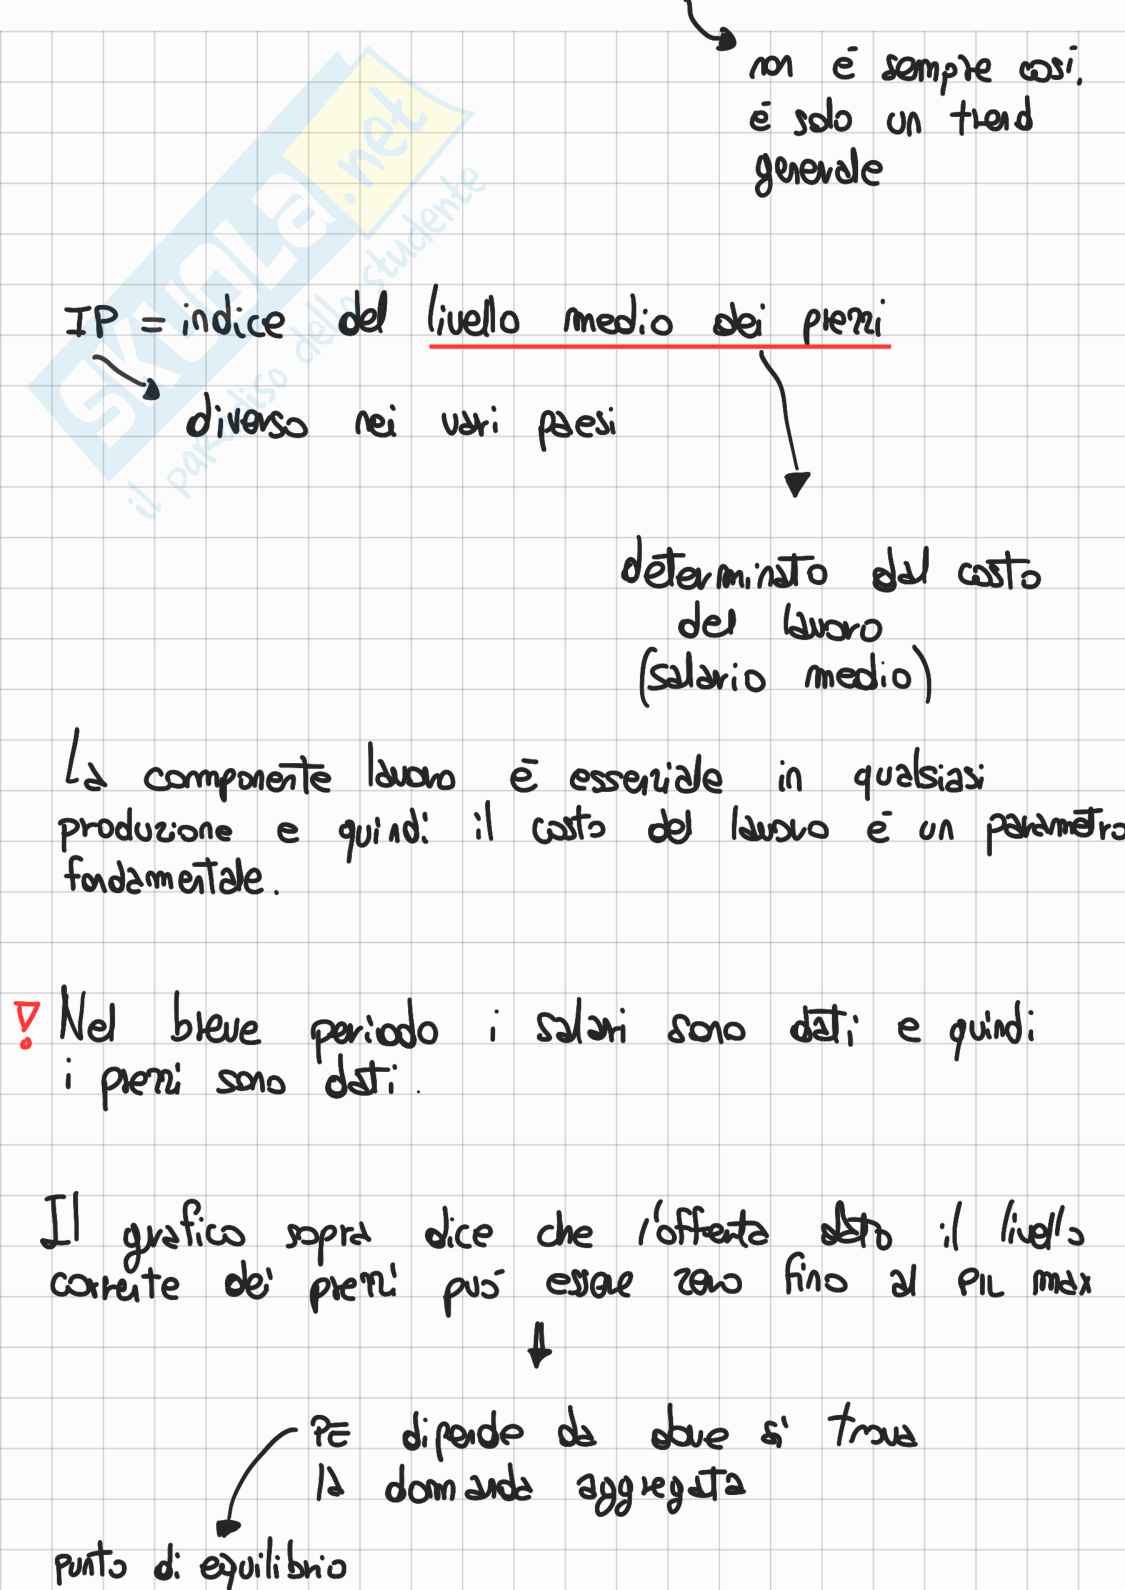 non è sempre così.
è solo un trend
generale
SKUOLA.net
il paradiso dello studente
IP = indice del livello medio dei prezzi
diverso nei vari paesi
determinato dal costo
del lavoro
(salario medio)
La componente lavoro è essenziale in qualsiasi
produzione e quindi il costo del lavoro è un parametro
fondamentale.
! Nel breve periodo i salari sono dati e quindi
i prezzi sono dati.
Il grafico sopra dice che l'offerta dato il livello
corrente dei prezzi può essere zero fino al PIL max
PE dipende da dove si trova
la domanda aggregata
punto di equilibrio